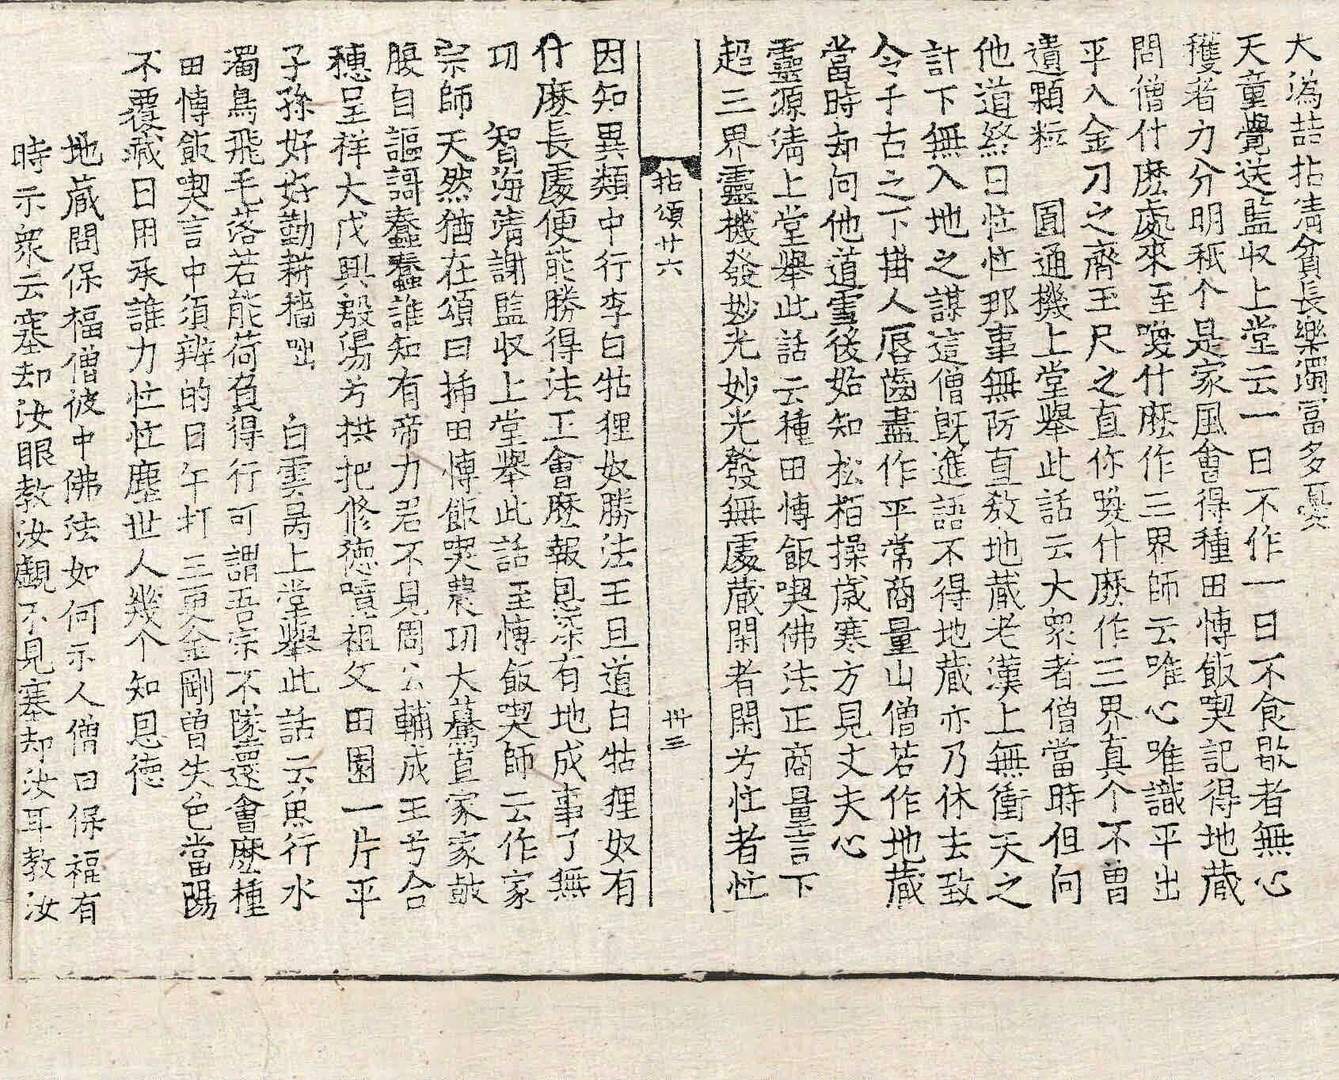 大溈喆拈淸貧長樂濁富多憂
天童覺送監収上堂云一日不作一日不食歇者無心
穫者力分明秖个是家風會得種田愽飯喫記得地蔵
問僧什麽處來至喚什麽作三界師云唯心唯識平出
乎入金刀之齊玉尺之直你喚什麽作三界真个不曽
遺顆粒 圓通機上堂舉此話云大衆者僧當時但向
他道終日忙忙那事無防直教地蔵老漢上無衝天之
計下無入地之謀這僧旣進語不得地蔵亦乃休去致
令千古之下掛人脣齒盡作平常商量山僧若作地蔵
當時却向他道雪後始知松栢操歲寒方見丈夫心
靈源淸上堂舉此話云種田愽飯喫佛法正商量言下
超三界靈機發妙光妙光發無處蔵閑者閑兮忙者忙
拈頌廿六
卅三
因知異類中行李白牯狸奴勝法王且道白牯狸奴有
什麽長處便能勝得法王會麽報恩深有地成事了無
功 智海淸謝監収上堂舉此話至愽飯喫師云作家
宗師天然猶在頌曰揷田愽飯喫農功大驀直家家鼓
腹自謳謌蠢蠢誰知有帝力君不見周公輔成王兮合
穗呈祥大戊興殷湯兮拱把修德噴祖父田園一片平
子孫好好勤耕穡咄 白雲昺上堂舉此話云魚行水
濁鳥飛毛落若能荷負得行可謂吾宗不墜還會麽種
田愽飯喫言中須辨的日午打三更金剛曽失色當陽
不覆藏日用承誰力忙忙塵世人幾个知恩德
地蔵問保福僧彼中佛法如何示人僧曰保福有
時示衆云塞却汝眼教汝覷不見塞却汝耳教汝